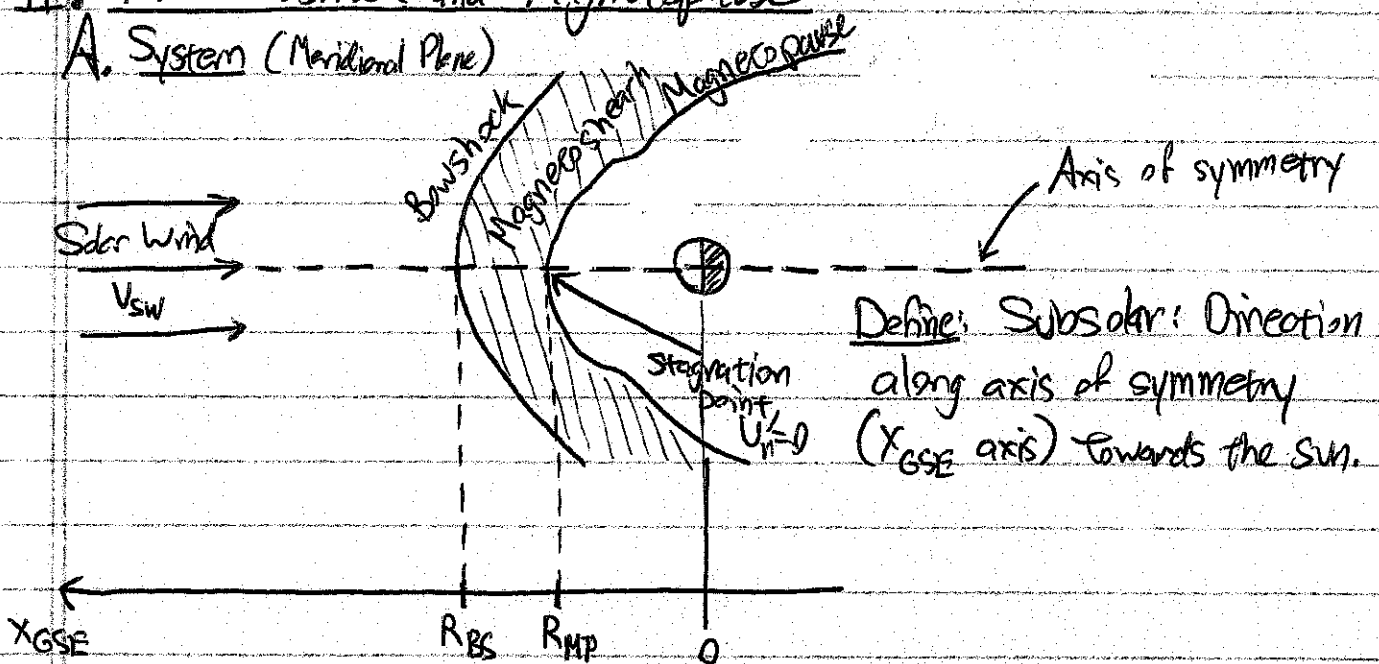 and Magnetopause
A. System (Meridional Plane)
Bowshock
Magnetosheath
Magnetopause
Axis of symmetry
Solar Wind
V_SW
Stagnation
point,
U_n=0
Define: Subsolar: Direction
along axis of symmetry
(X_GSE axis) towards the sun.
X_GSE R_BS R_MP 0